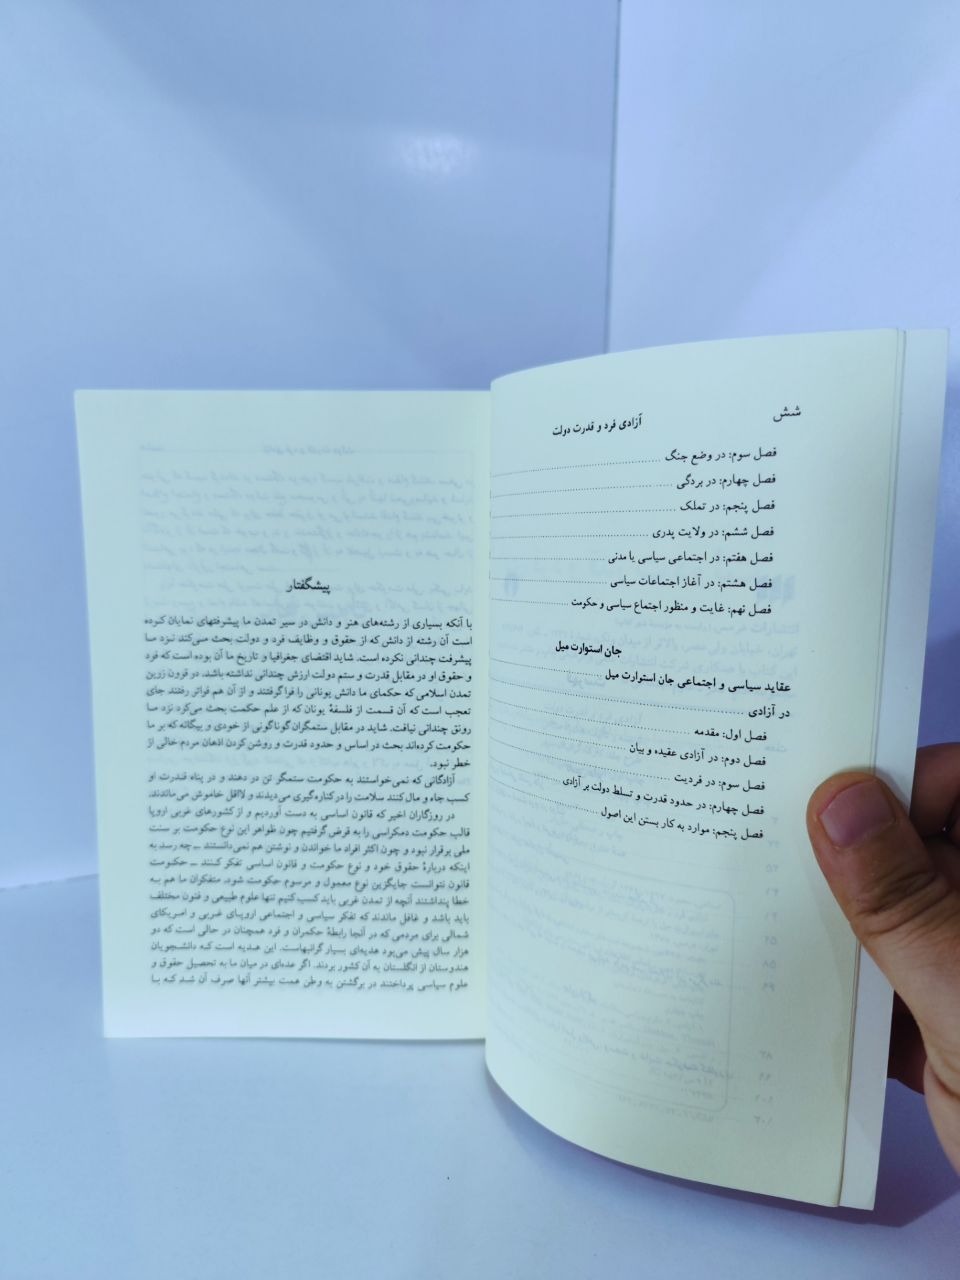 شش
آزادی فرد و قدرت دولت
فصل سوم: در وضع جنگ
فصل چهارم: در بردگی
فصل پنجم: در تملک
فصل ششم: در ولایت پدری
فصل هفتم: در اجتماعی سیاسی یا مدنی
فصل هشتم: در آغاز اجتماعات سیاسی
فصل نهم: غایت و منظور اجتماع سیاسی و حکومت
جان استوارت میل
عقاید سیاسی و اجتماعی جان استوارت میل
در آزادی
فصل اول: مقدمه
فصل دوم: در آزادی عقیده و بیان
فصل سوم: در فردیت
فصل چهارم: در حدود قدرت و تسلط دولت بر آزادی
فصل پنجم: موارد به کار بستن این اصول
پیشگفتار
با آنکه بسیاری از رشته‌های هنر و دانش در سیر تمدن ما پیشرفتهای نمایان کرده
است آن رشته از دانش که از حقوق و وظایف فرد و دولت بحث می‌کند نزد ما
پیشرفت چندانی نکرده است. شاید اقتضای جغرافیا و تاریخ ما آن بوده است که فرد
و حقوق او در مقابل قدرت و ستم دولت ارزش چندانی نداشته باشد. در قرون زرین
تمدن اسلامی که حکمای ما دانش یونانی را فرا گرفتند و از آن هم فراتر رفتند جای
تعجب است که آن قسمت از فلسفهٔ یونان که از علم حکمت بحث می‌کرد نزد ما
رونق چندانی نیافت. شاید در مقابل ستمگران گوناگونی از خودی و بیگانه که بر ما
حکومت کرده‌اند بحث در اساس و حدود قدرت و روشن کردن اذهان مردم خالی از
خطر نبود.
آزادگانی که نمی‌خواستند به حکومت ستمگر تن در دهند و در پناه قدرت او
کسب جاه و مال کنند سلامت را در کناره‌گیری می‌دیدند و لااقل خاموش می‌ماندند.
در روزگاران اخیر که قانون اساسی به دست آوردیم و از کشورهای غربی اروپا
قالب حکومت دمکراسی را به قرض گرفتیم چون ظواهر این نوع حکومت بر سنت
ملی برقرار نبود و چون اکثر افراد ما خواندن و نوشتن هم نمی‌دانستند ــ چه رسد به
اینکه دربارهٔ حقوق خود و نوع حکومت و قانون اساسی تفکر کنند ــ حکومت
قانون نتوانست جایگزین نوع معمول و مرسوم حکومت شود. متفکران ما هم به
خطا پنداشتند آنچه از تمدن غربی باید کسب کنیم تنها علوم طبیعی و فنون مختلف
باید باشد و غافل ماندند که تفکر سیاسی و اجتماعی اروپای غربی و امریکای
شمالی برای مردمی که در آنجا رابطهٔ حکمران و فرد همچنان در حالی است که دو
هزار سال پیش می‌بود هدیه‌ای بسیار گرانبهاست. این هدیه است که دانشجویان
هندوستان از انگلستان به آن کشور بردند. اگر عده‌ای در میان ما به تحصیل حقوق و
علوم سیاسی پرداختند در برگشتن به وطن همت بیشتر آنها صرف آن شد که با